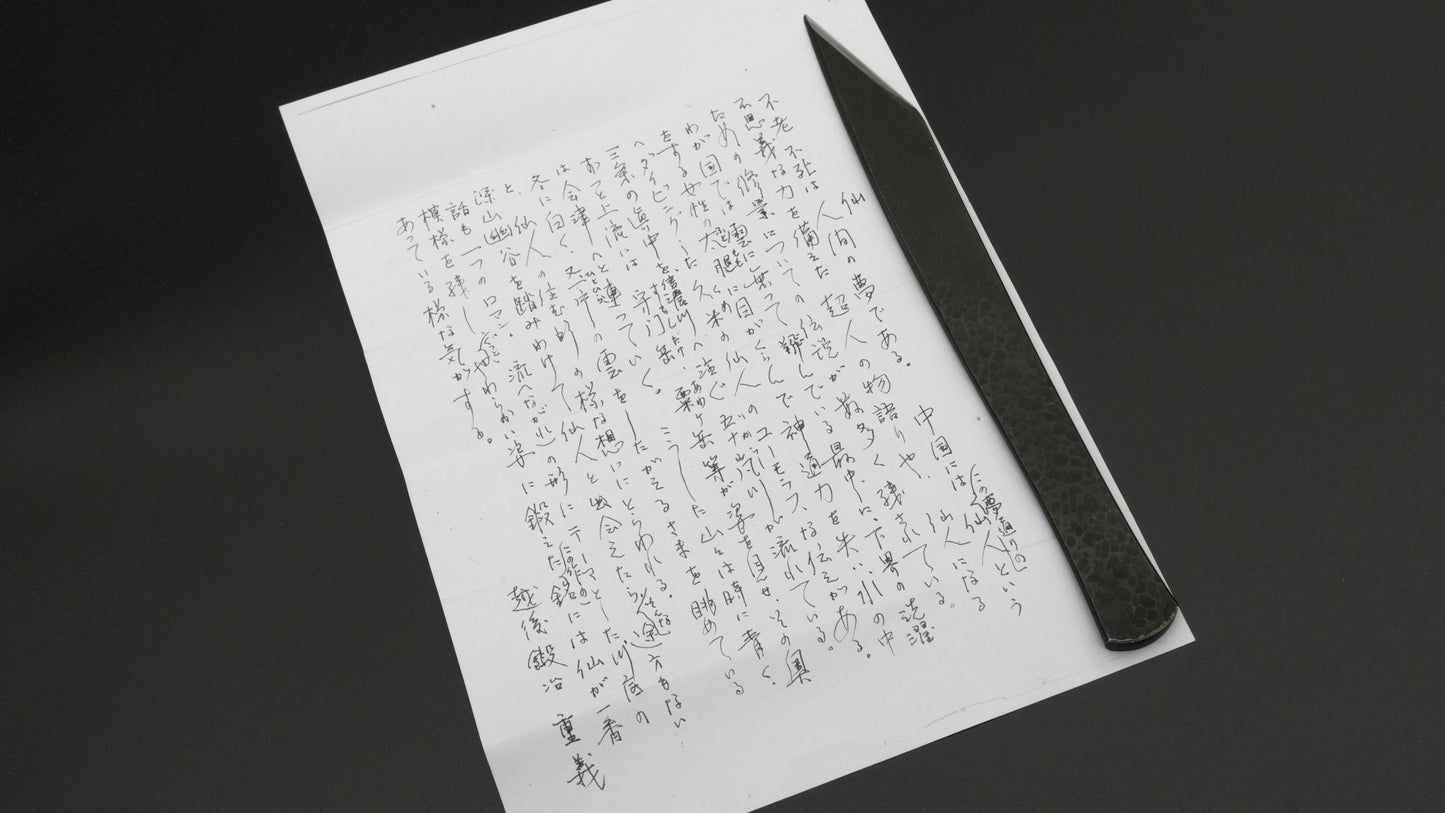 仙
不老不死は人間の夢である。中国には(この夢通りの)仙人という
不思義な力を備えた超人の物語りや、仙人になる
ための修業についての伝説が数多く残されている。
わが国では雲に乗って翔んでいる最中に、下界の洗濯
をする女性の太腿に目がくらんで神通力を失い水の中
へダイビングした久米の仙人のユーモラスな伝えがある。
三条の真中を信濃川へ注ぐ五十嵐川が流れている。
ずっと上流には守門岳、粟ヶ岳等が姿を見せ、その奥
は会津へと連っていく。こうした山々は時に青く、
冬に白く、又一片の雲をしたがえるさまを眺めている
と、仙人の住む所の様な想いにとらわれる。
深山幽谷を踏みわけて仙人と出会えたら(そんな)途方もない
話も一つのロマン。流(ながれ)の形にテーマとした川底の
模様を残しやわらかい姿に鍛えたこの作の銘には仙が一番
あっている様な気がする。
越後鍛冶 重義